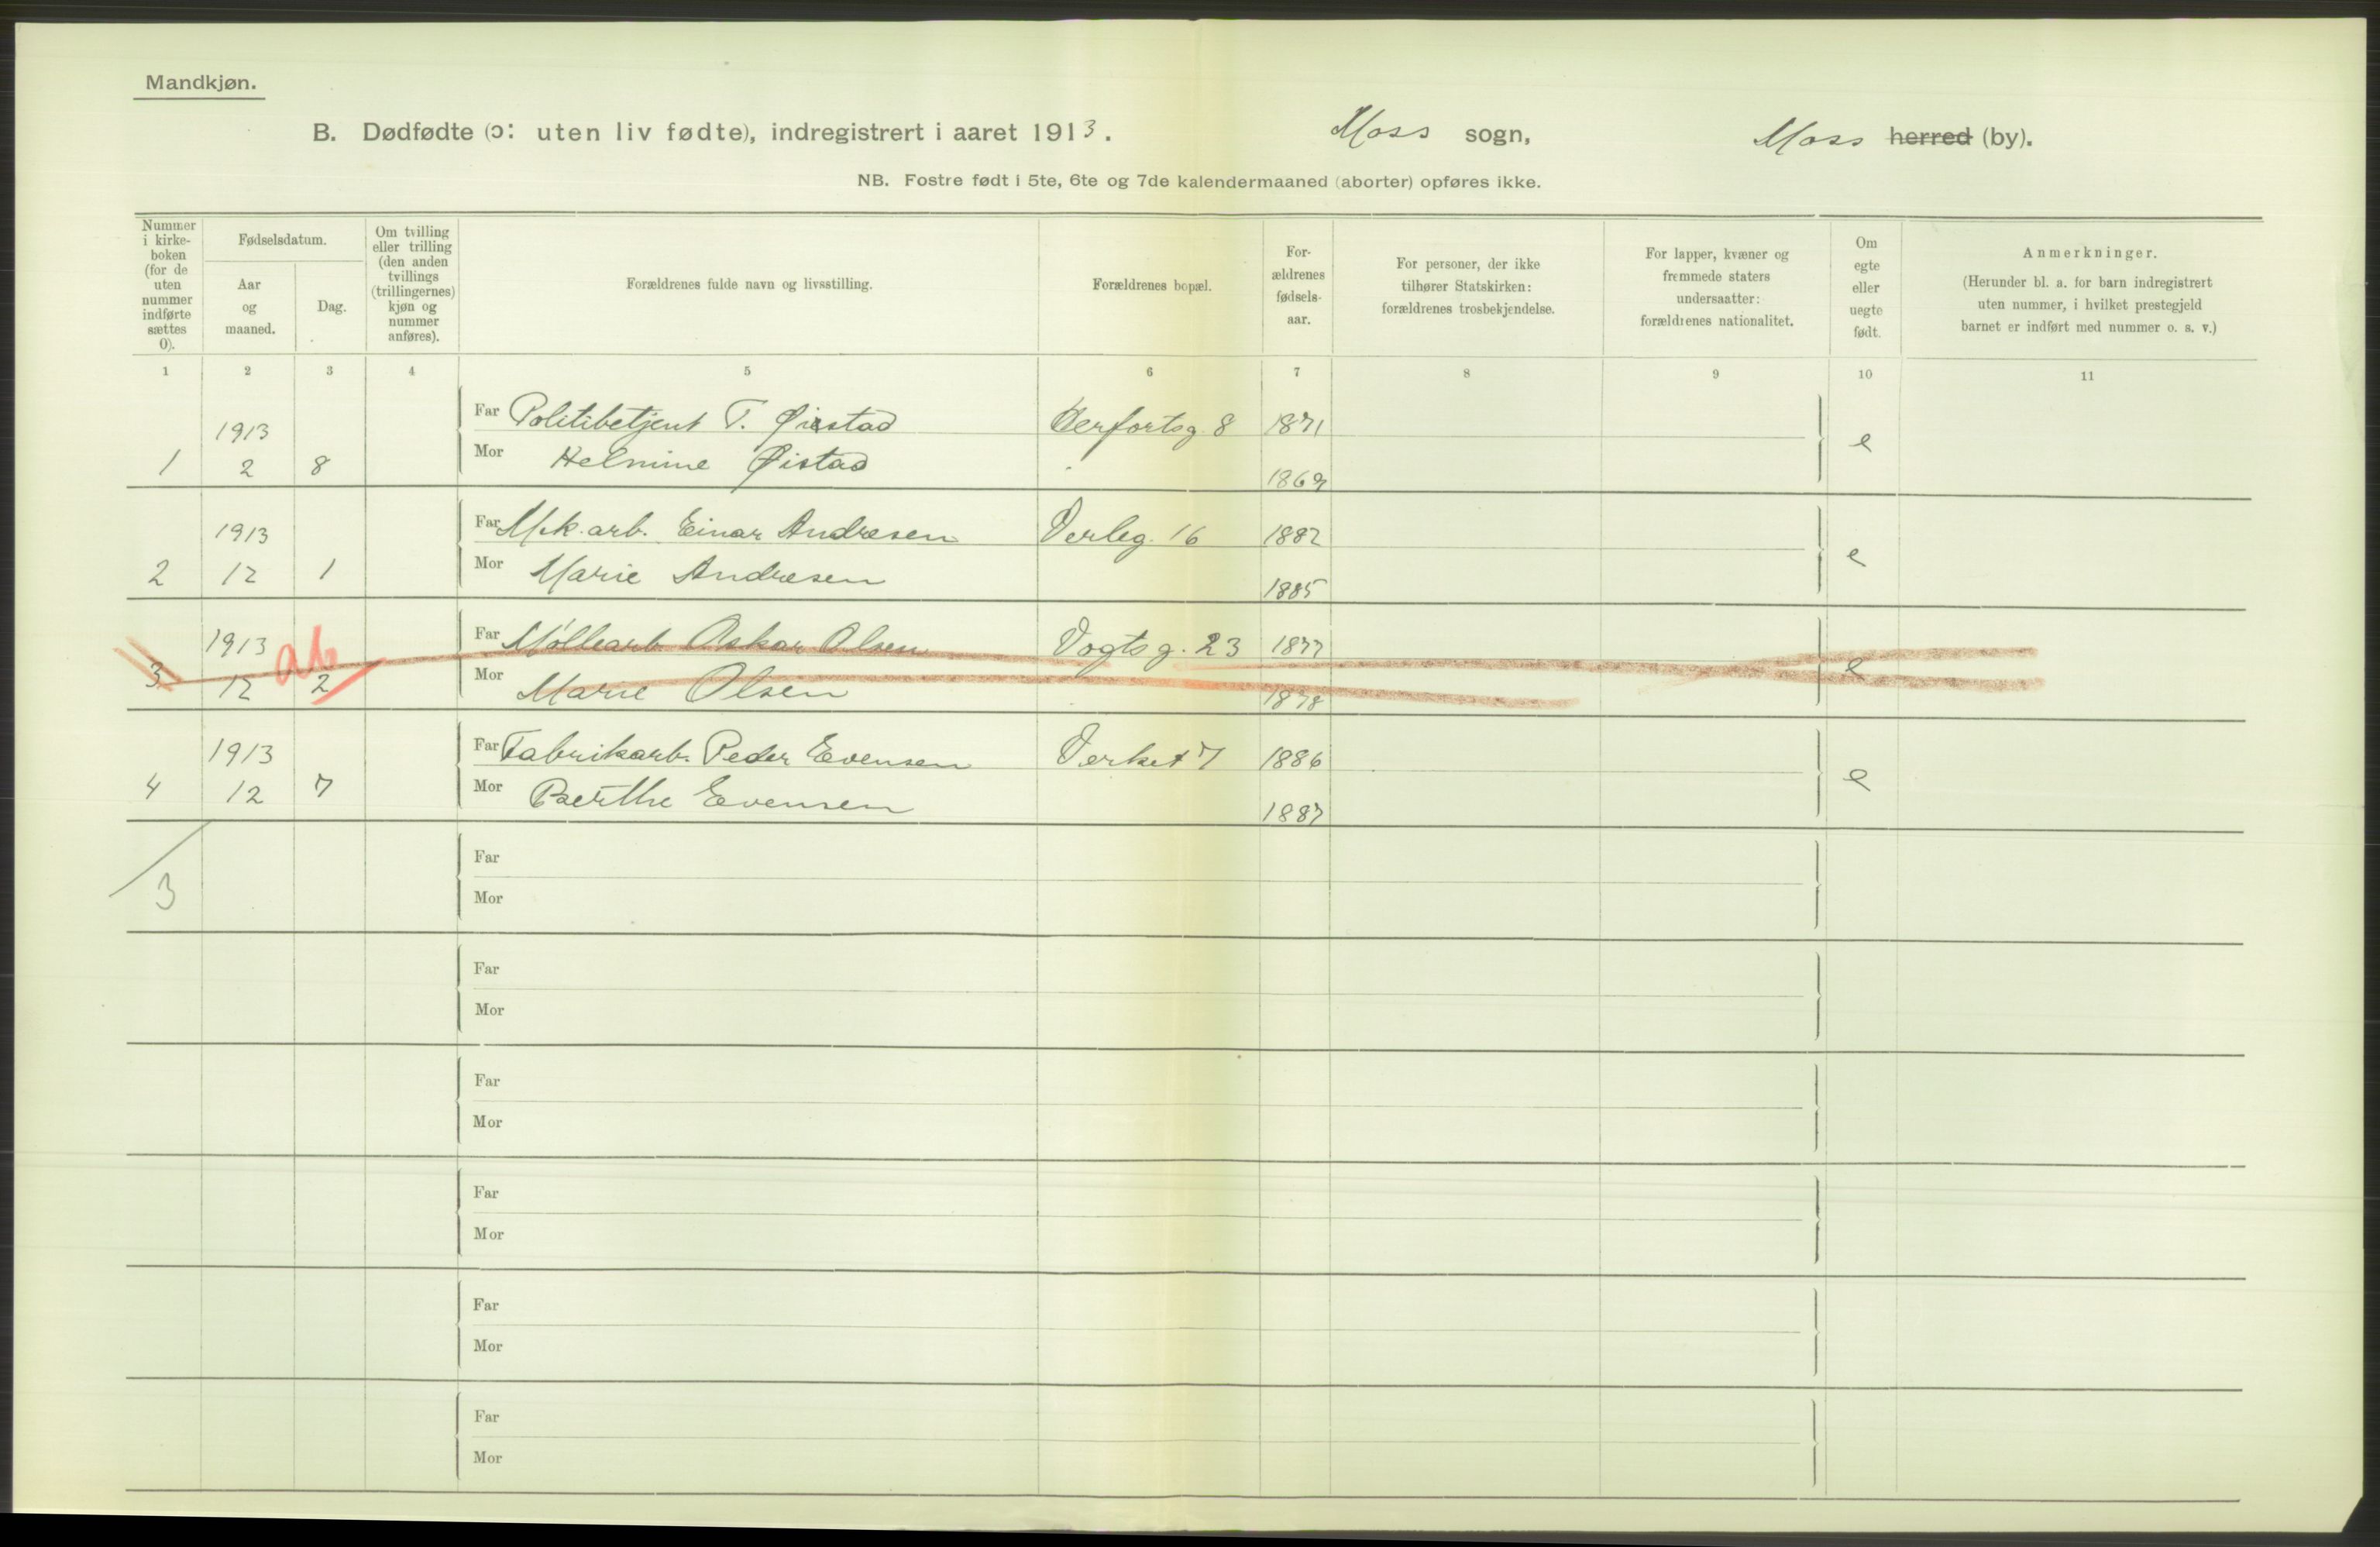 Mandkjøn.
B. Dødfødte (ɔ: uten liv fødte), indregistrert i aaret 1913. Moss sogn, Moss herred (by).
NB. Fostre født i 5te, 6te og 7de kalendermaaned (aborter) opføres ikke.
Nummer i kirke-boken (for de uten nummer indførte sættes 0).
Fødselsdatum.
Aar og maaned.
Dag.
Om tvilling eller trilling (den anden tvillings (trillingernes) kjøn og nummer anføres).
Forældrenes fulde navn og livsstilling.
Forældrenes bopæl.
For-ældrenes fødsels-aar.
For personer, der ikke tilhører Statskirken: forældrenes trosbekjendelse.
For lapper, kvæner og fremmede staters undersaatter: forældrenes nationalitet.
Om egte eller uegte født.
Anmerkninger.
(Herunder bl. a. for barn indregistrert uten nummer, i hvilket prestegjeld barnet er indført med nummer o. s. v.)
1 2 3 4 5 6 7 8 9 10 11
1913 Far Politibetjent T. Øistad 8 1871
1 2 8 Mor Helmine Øistad 1869 e
1913 Far Mek. arb. Einar Andresen Verleg. 16 1882
2 12 1 Mor Marie Andresen 1885 e
1913 ab Far Møllearb. Oskar Olsen Vogtsg. 23 1877
3 12 2 Mor Marie Olsen 1878 e
1913 Far Fabrikarb. Peder Evensen Verket 7 1886
4 12 7 Mor Berthe Evensen 1887 e
Far
3 Mor
Far
Mor
Far
Mor
Far
Mor
Far
Mor
Far
Mor